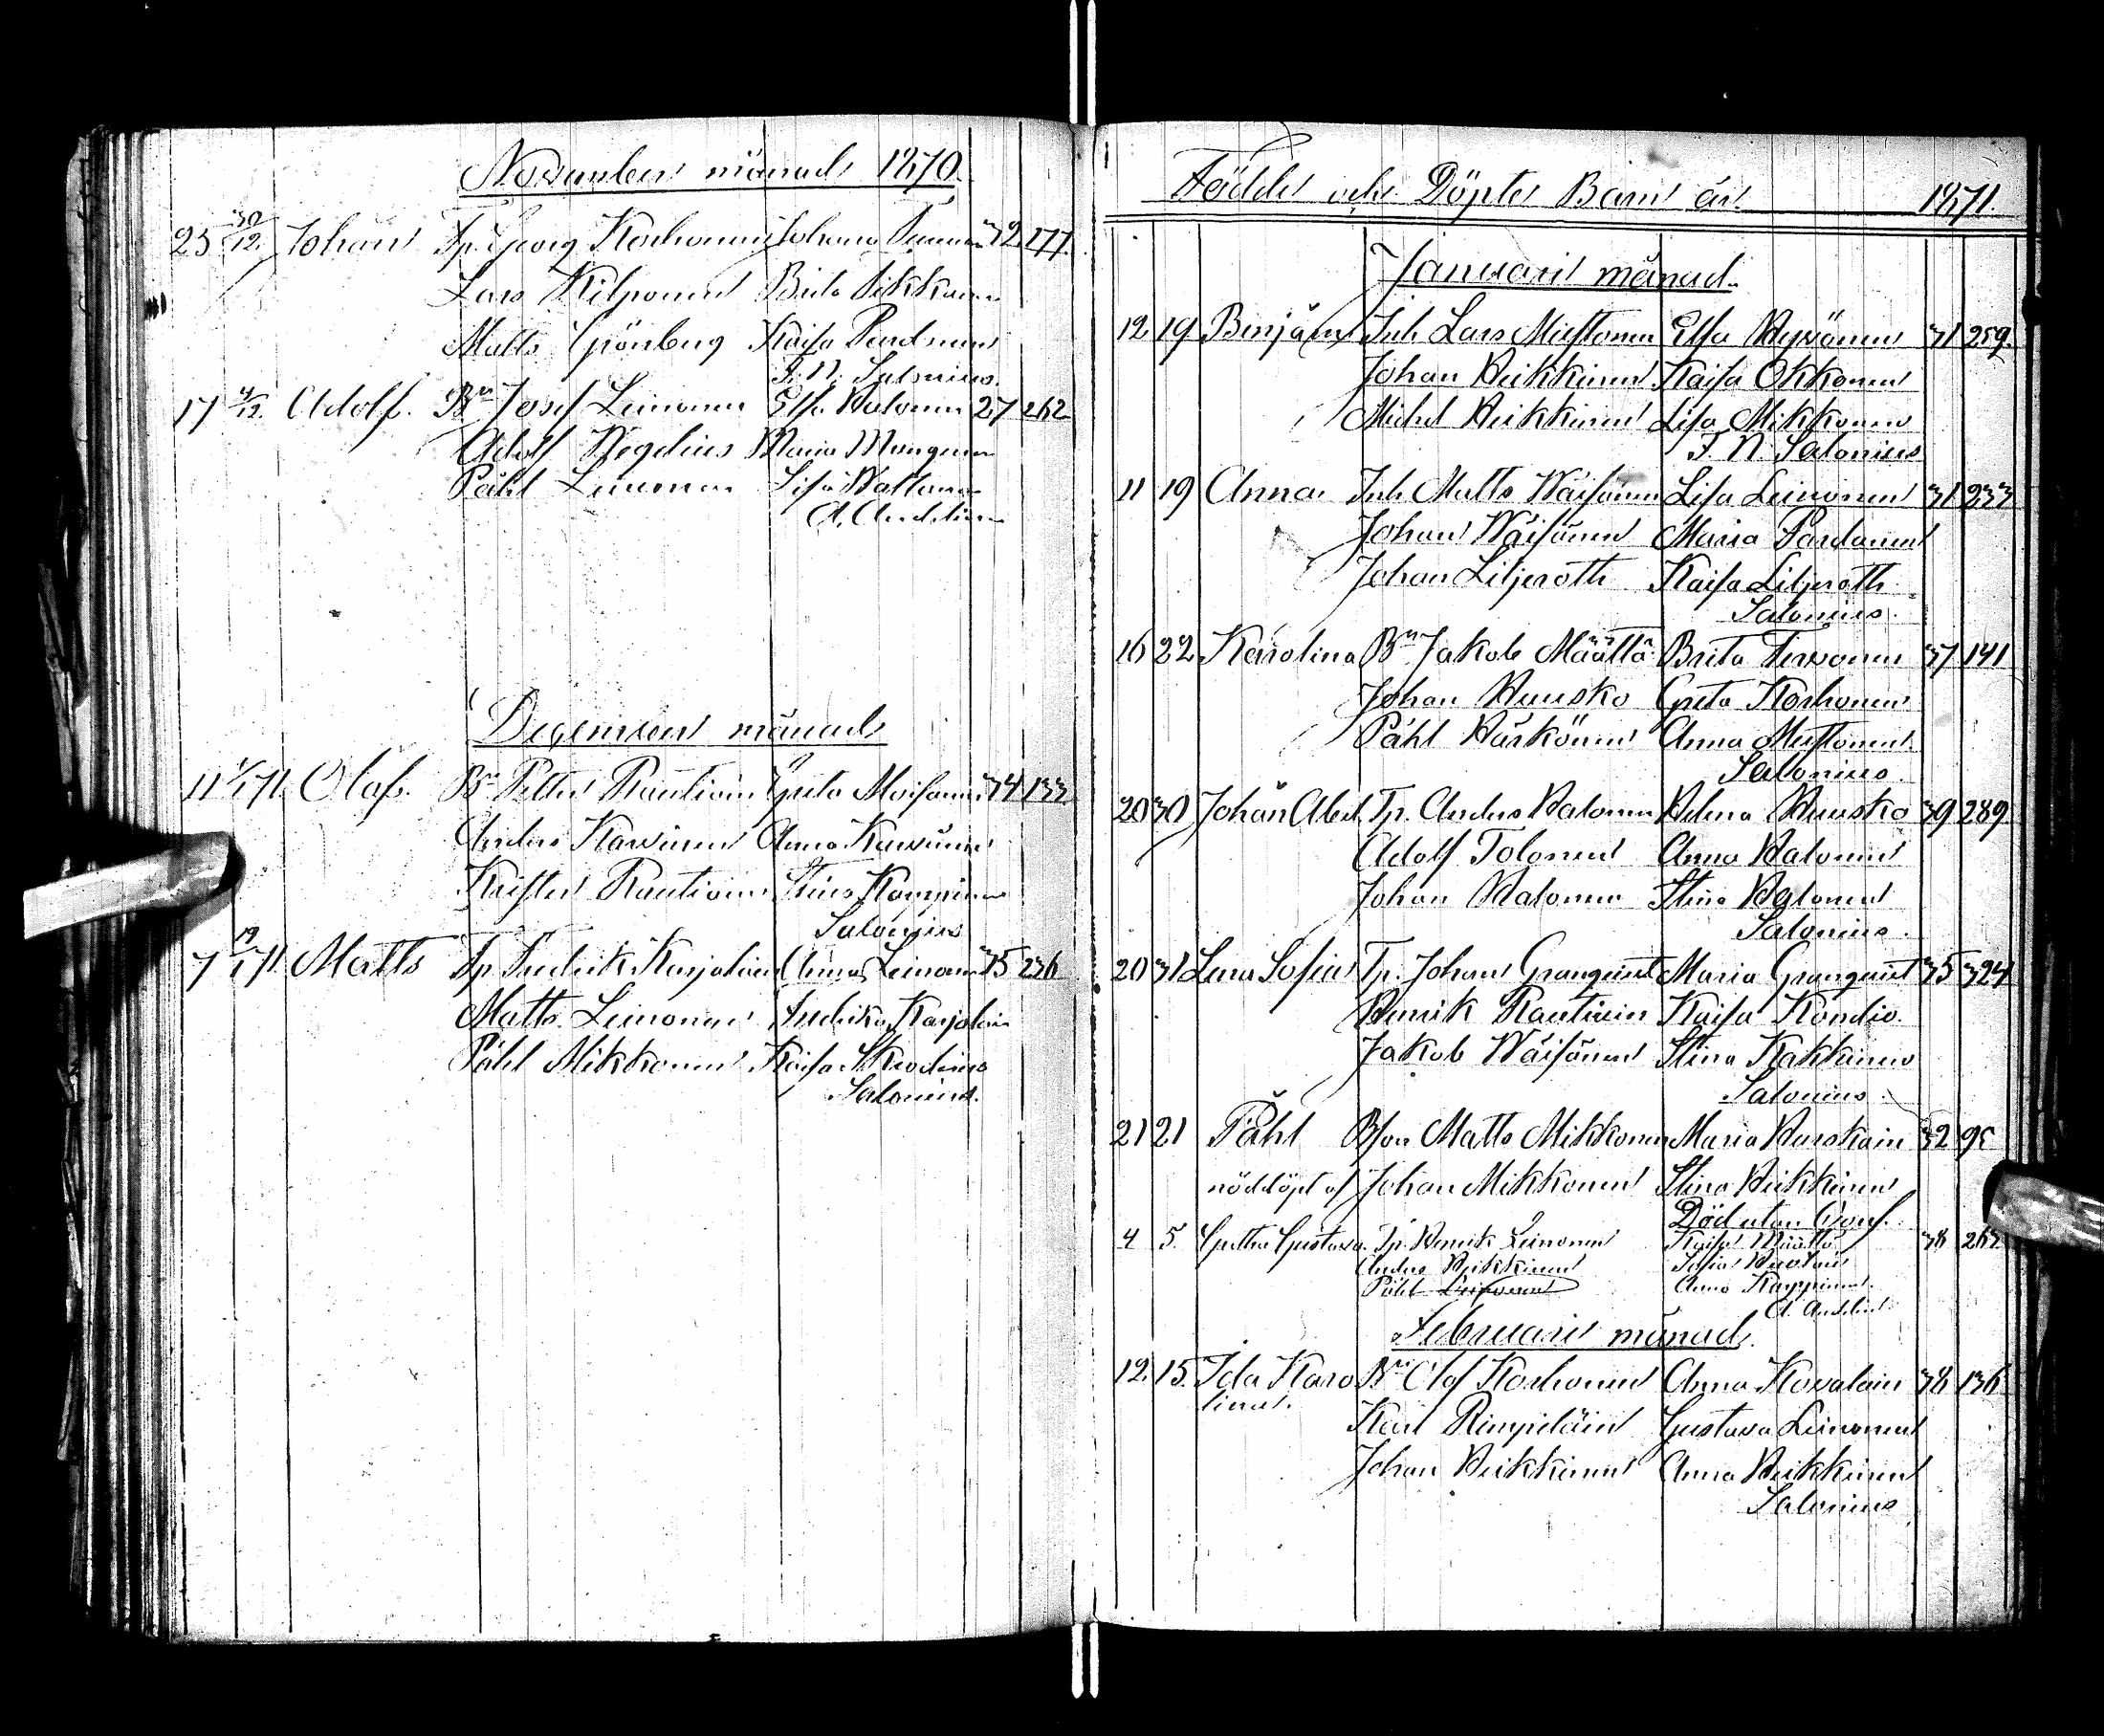 November månad 1870.
25 30/12. Johan Tp. Georg Korhonen Johana 32 177.
Lars Kilponen Brita Pikkarn
Matts Grönberg Kaisa
F. N. Salonius.
17 4/12 Adolf. Bn Josef Leinonen Elsa Halonen 27 262
Adolf Wegelius Maria
Påhl Leinonen Lisa
A. Andelin
December månad
11 1/1 71. Olaf. Bn Petter Rautiain Greta Moisanen 34 133
Anders Karvinen Anna Karvinen
Krister Rautiain Stina Kemppinen
Salonius
7 19/1 71. Matts Tp Fredrik Karjalain Anna Leinonen 35 236
Matts Leinonen Fredrika Karjalain
Påhl Mikkonen Kaisa
Salonius.
Födde och Döpte Barn år 1871.
Januari månad.
12 19 Benjam Inh Lars Mustonen Elsa Hyvönen 31 259.
Johan Heikkinen Kaisa Okkonen
Michel Heikkinen Lisa Mikkonen
F. N. Salonius
11 19 Anna Inh Matts Wäisänen Lisa Leinonen 31 233
Johan Wäisänen Maria Pardanen
Johan Liljeroth Kaisa Liljeroth
Salonius.
16 22 Karolina Bn Jakob Määttä Brita Tervonen 37 141
Johan Huusko Greta Korhonen
Påhl Härkönen Anna Mustonen
Salonius.
20 30 Johan Abel Tp. Anders Halonen Helena Huusko 39 289.
Adolf Tolonen Anna Halonen
Johan Halonen Stina Halonen
Salonius.
20 31 Lena Sofia Tp. Johan Granquist Maria Granquist 35 324
Henrik Rautiain Kaisa
Jakob Wäisänen Stina Kakkinen
Salonius.
21 21 Påhl Bson Matts Mikkonen Maria Hurskain 32
nöddöpt af Johan Mikkonen Stina Heikkinen
Död utan Conf.
4 5. Gretha Gustava. Tp. Henrik Leinonen Kaisa Määttä 38
Anders Heikkinen Sofia
Påhl Leinonen Anna Kemppinen
A. Andelin
Februari månad.
12. 15. Ida Karo Bn Olof Korhonen Anna Kovalain 38 136
lina.
Karl Rimpiläin Gustava Leinonen
Johan Heikkinen Anna Heikkinen
Salonius